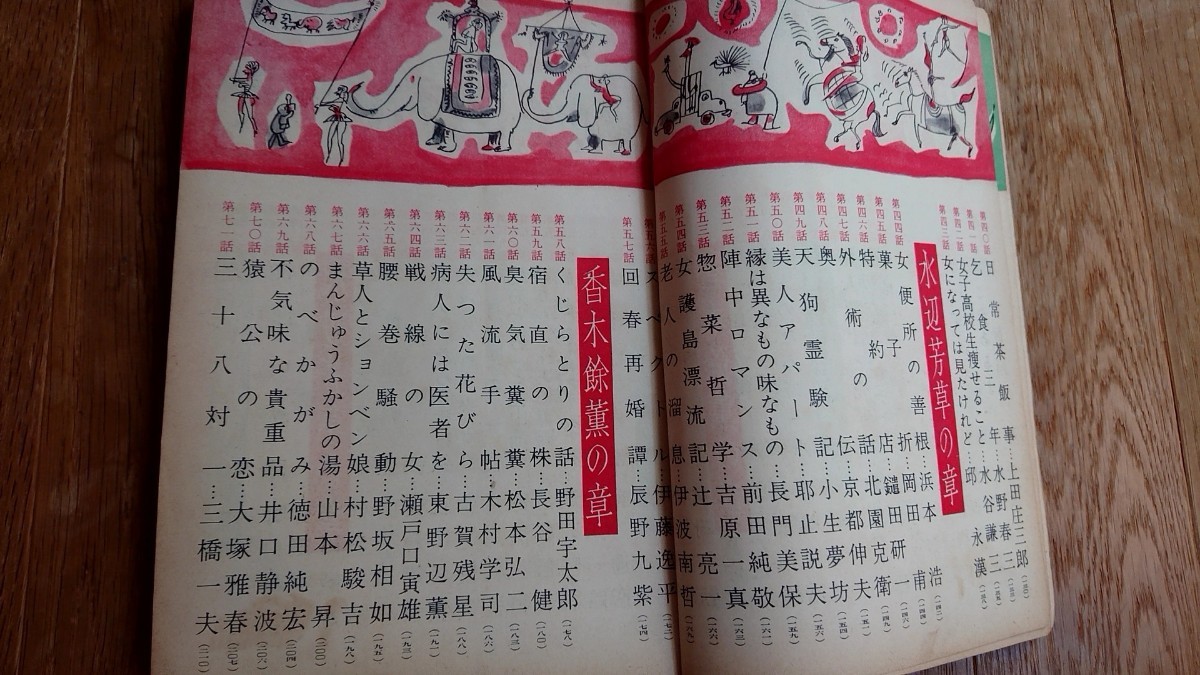 第四〇話 日常茶飯事…上田庄三郎
第四一話 乞食三年…水野春三
第四二話 女子高校生痩せること…水谷謙三
第四三話 女になっては見たけれど…邱永漢
水辺芳草の章
第四四話 女便所の善…根浜本浩
第四五話 菓子折…岡田甫
第四六話 特約店…鑓田研一
第四七話 外術の話…北園克衛
第四八話 奥の伝…京都伸夫
第四九話 天狗霊験記…小生夢坊
第五〇話 美人アパート…耶止説夫
第五一話 縁は異なもの味なもの…長門美保
第五二話 陣中ロマンス…前田純敬
第五三話 惣菜哲学…吉原一真
第五四話 女護島漂流記…辻亮一
第五五話 老人の溜息…伊波南哲
第五六話 スペクトル…伊藤逸平
第五七話 回春再婚譚…辰野九紫
香木餘薫の章
第五八話 くじらとりの話…野田宇太郎(一七八)
第五九話 宿直の株…長谷健(一八〇)
第六〇話 臭気糞糞…松本弘二
第六一話 風流手帖…木村学司
第六二話 失つた花びら…古賀残星
第六三話 病人には医者を…東野辺薫
第六四話 戦線の女…瀬戸口寅雄
第六五話 腰巻騒動…野坂相如
第六六話 草人とションベン娘…村松駿吉
第六七話 まんじゅうふかしの湯…山本昇
第六八話 のべかがみ…徳田純宏
第六九話 不気味な貴重品…井口静波
第七〇話 猿公の恋…大塚雅春
第七一話 三十八対一…三橋一夫